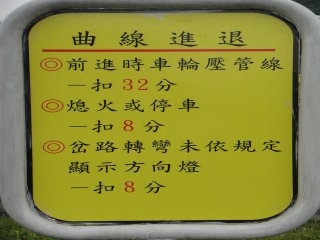 曲線進退
◎前進時車輪壓管線
—扣32分
◎熄火或停車
—扣8分
◎岔路轉彎未依規定
顯示方向燈
—扣8分